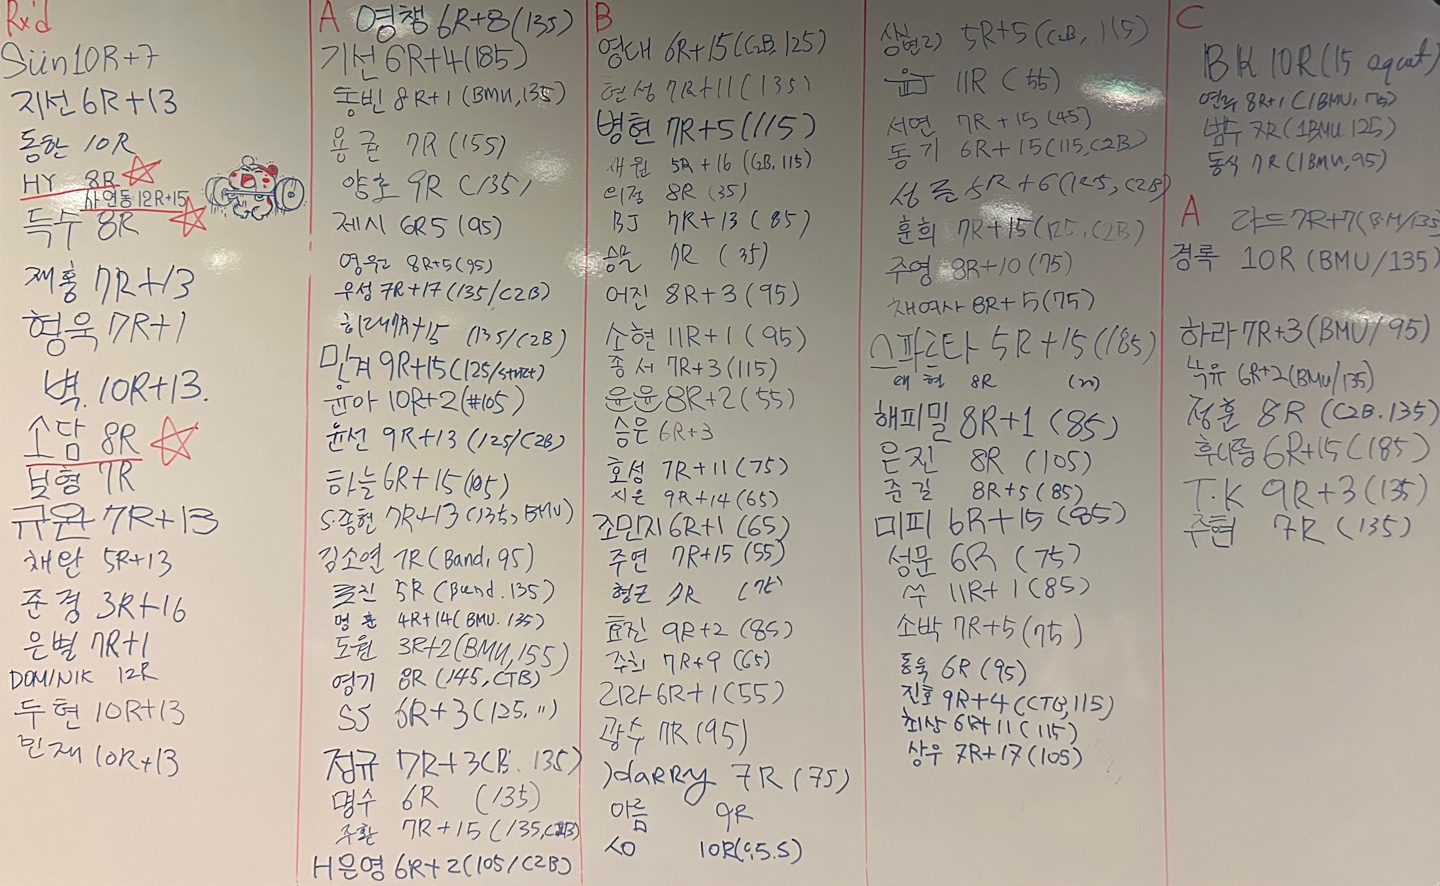 Rx'd
Siin 10R+7
지선 6R+13
동한 10R
HY 8R
사연동 12R+15
득수 8R
재홍 7R+13
형욱 7R+1
벽. 10R+13.
소담 8R
보형 7R
규원 7R+13
채완 5R+13
준경 3R+16
은별 7R+1
DOMINIK 12R
두현 10R+13
민재 10R+13
A 영챙 6R+8(135)
기선 6R+4(185)
동빈 8R+1 (BMU,135)
용균 7R (155)
양호 9R (135)
제시 6R5 (95)
영원 8R+5(95)
우성 7R+17 (135/C2B)
희래 7R+15 (135/C2B)
민계 9R+15(125/strict)
윤아 10R+2(#105)
윤선 9R+13 (125/C2B)
하늘 6R+15(105)
S.종현 7R+13 (135, BMU)
김소연 7R (Band, 95)
5R (Band. 135)
명훈 4R+14(BMU. 135)
도원 3R+2(BMU, 155)
영기 8R (145, CTB)
SS 6R+3 (125. ")
정규 7R+3(B. 135)
명수 6R (135)
주환 7R+15 (135,C2B)
H은영 6R+2(105/C2B)
B
영대 6R+15(C2B.125)
현성 7R+11(135)
병현 7R+5(115)
새원 5R+16 (C2B.115)
의정 8R (35)
BJ 7R+13 (85)
승물 7R (35)
어진 8R+3 (95)
소현 11R+1 (95)
종서 7R+3(115)
윤윤 8R+2(55)
승은 6R+3
호성 7R+11(75)
시은 9R+14(65)
조민지 6R+1 (65)
주연 7R+15 (55)
형근 7R (75)
효진 9R+2 (85)
주희 7R+9 (65)
리라 6R+1(55)
광수 7R(95)
darry 7R (75)
아름 9R
10R
상현2) 5R+5(C2B, 115)
윤 11R (55)
서연 7R+15(45)
동기 6R+15(115,C2B)
성른 5R+6(125, C2B)
훈희 7R+15(125, C2B)
주영 8R+10(75)
채여사 8R+5(75)
스파르타 5R+15(185)
대현 8R
해피밀 8R+1 (85)
은진 8R (105)
준길 8R+5(85)
미피 6R+15(85)
성문 6R (75)
쑤 11R+1(85)
소박 7R+5(75)
동욱 6R (95)
진호 9R+4(CTB,115)
최상 6R+11(115)
상우 7R+17(105)
C
BK 10R (15 squat)
연두 8R+1 (1BMU, 75)
범수 7R (1BMU.125)
동식 7R (1BMU, 95)
A 라드 7R+7(BM/135)
경록 10R (BMU/135)
하라 7R+3(BMU/95)
낙유 6R+2(BMU/135)
정훈 8R (C2B.135)
후니쭝 6R+15(185)
T.K 9R+3(135)
주현 7R (135)